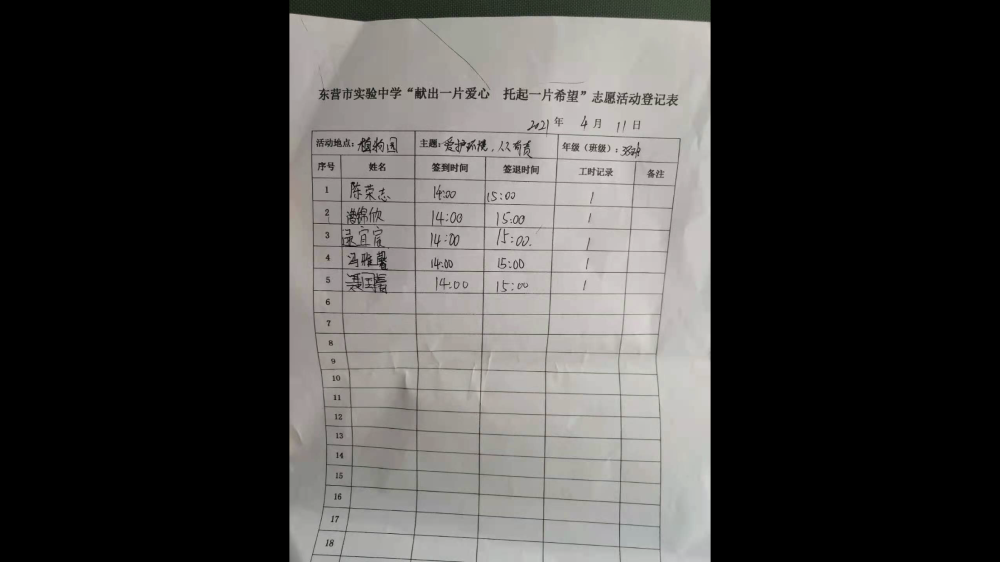 东营市实验中学“献出一片爱心 托起一片希望”志愿活动登记表
2021年 4月 11日
活动地点：植物园 主题：爱护环境，人人有责 年级（班级）：38班
序号 姓名 签到时间 签退时间 工时记录 备注
1 陈荣志 14:00 15:00 1
2 欣 14:00 15:00 1
3 宜宸 14:00 15:00. 1
4 冯雅馨 14:00 15:00 1
5 14:00 15:00 1
6
7
8
9
10
11
12
13
14
15
16
17
18